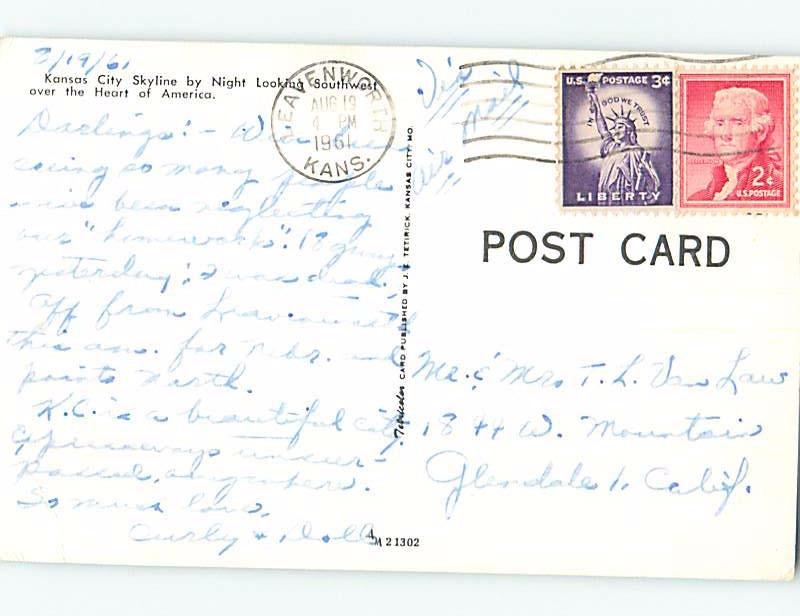 3/19/61
Kansas City Skyline by Night Looking Southwest
over the Heart of America.
Darlings:- We've been
seeing so many people
we've been neglecting
our "homework". 18 guys
yesterday; I was dead.
Off from Leavenworth
this am. for Nebr. and
points North.
K.C. is a beautiful city
& freeways unsur-
passed, anywhere.
So much love,
Curly & Doll
LEAVENWORTH
AUG 19
4 PM
1961
KANS.
Via
air mail
U.S. POSTAGE 3¢
IN GOD WE TRUST
LIBERTY
2¢
U.S. POSTAGE
POST CARD
Tetricolor CARD PUBLISHED BY J. E. TETIRICK, KANSAS CITY, MO.
Mr. & Mrs T. L. Van Law
1844 W. Mountain
Glendale 1, Calif.
M 21302